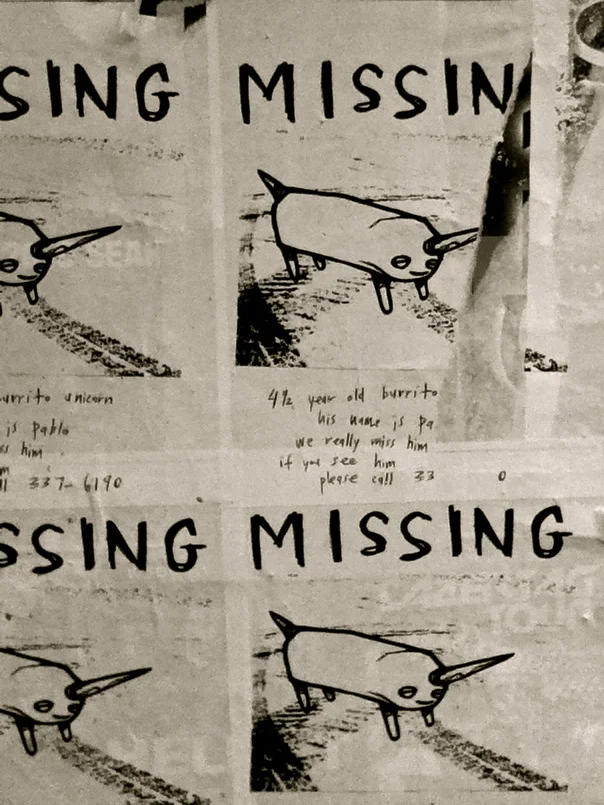 SING
MISSIN
burrito unicorn
is pablo
ss him
m
ll 337-6190
4½ year old burrito
his name is pa
we really miss him
if you see him
please call 33 0
SSING
MISSING